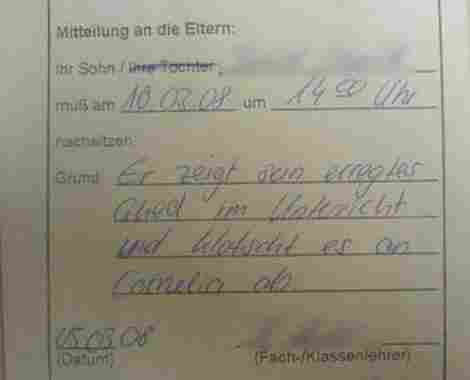 Mitteilung an die Eltern:
Ihr Sohn / Ihre Tochter,
muß am 10.03.08 um 14 00 Uhr
nachsitzen.
Grund Er zeigt sein erregtes
Glied im Unterricht
und klatscht es an
Cornelia ab.
05.03.08
(Datum) (Fach-/Klassenlehrer)